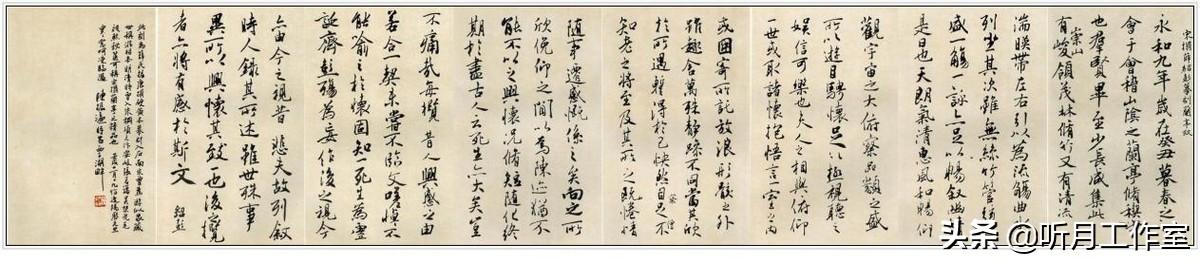 宋搨薛紹彭摹刻蘭亭敘
永和九年歲在癸丑暮春之
會于會稽山陰之蘭亭脩禊
也群賢畢至少長咸集此
崇山
有峻領茂林脩竹又有清流
湍暎帶左右引以為流觴曲
列坐其次雖無絲竹管
盛一觴一詠亦足以暢敘幽
是日也天朗氣清惠風和暢仰
觀宇宙之大俯察品類之盛
所以遊目騁懷足以極視聽之
娛信可樂也夫人之相與俯仰
一世或取諸懷抱悟言一室之內
或因寄所託放浪形骸之外
雖趣舍萬殊靜躁不同當其欣
於所遇蹔得於己快然自足不
知老之將至及其所之既惓情
隨事遷感慨係之矣向之所
欣俛仰之間以為陳迹猶不
能不以之興懷況脩短隨化終
期於盡古人云死生亦大矣豈
不痛哉每攬昔人興感之由
若合一契未嘗不臨文嗟悼不
能喻之於懷固知一死生為虛
誕齊彭殤為妄作後之視今
亦由今之視昔悲夫故列敘
時人錄其所述雖世殊事
異所以興懷其致一也後之攬
者亦將有感於斯文
紹彭
头条 @听月工作室